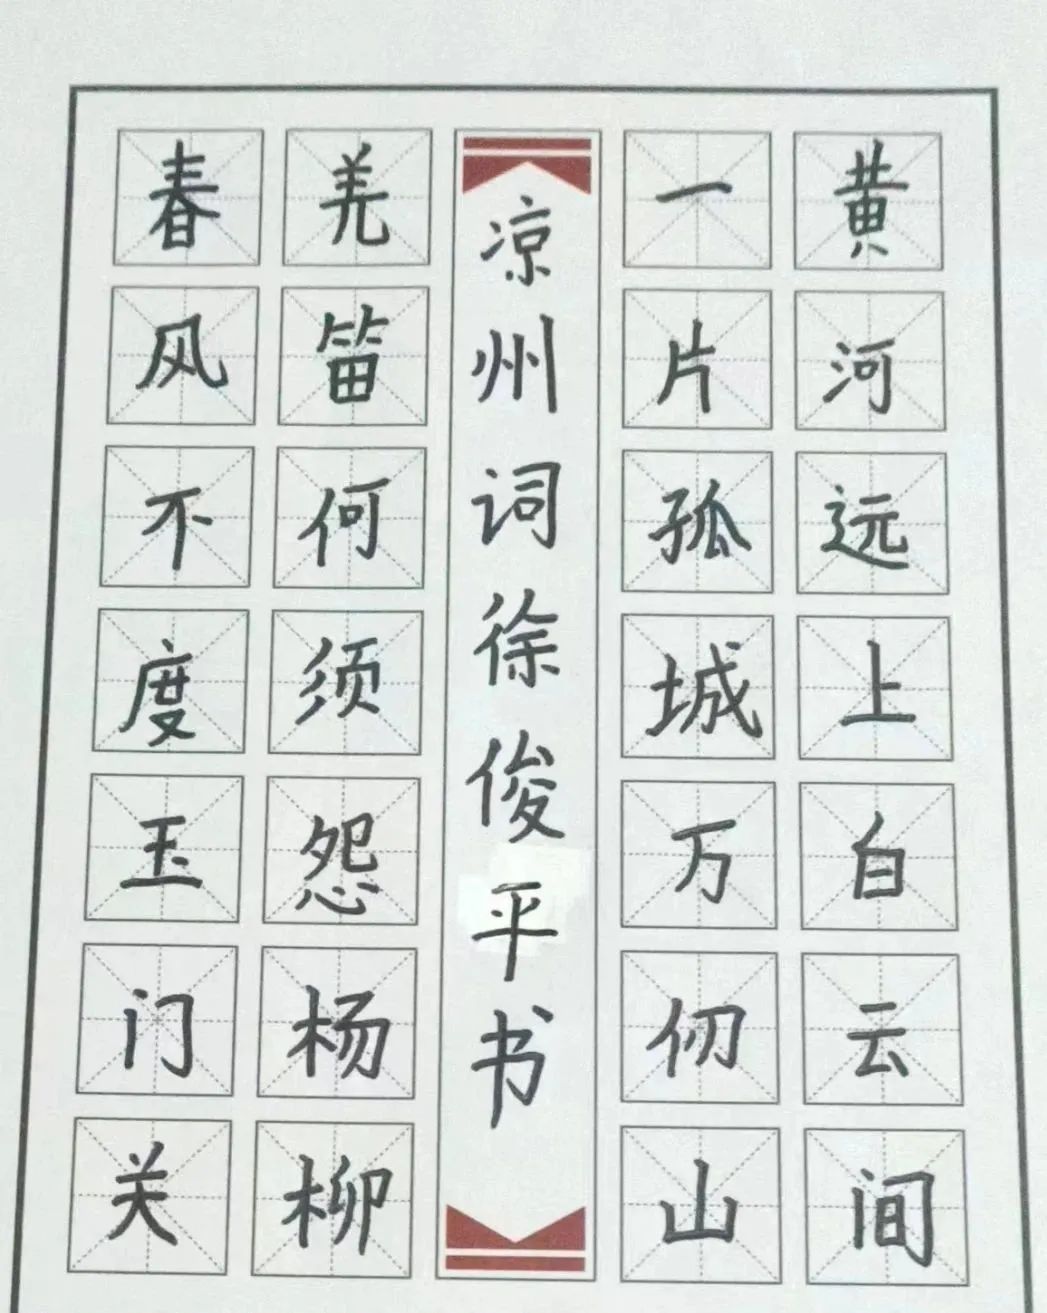 黄河远上白云间
一片孤城万仞山
凉州词徐俊平书
羌笛何须怨杨柳
春风不度玉门关